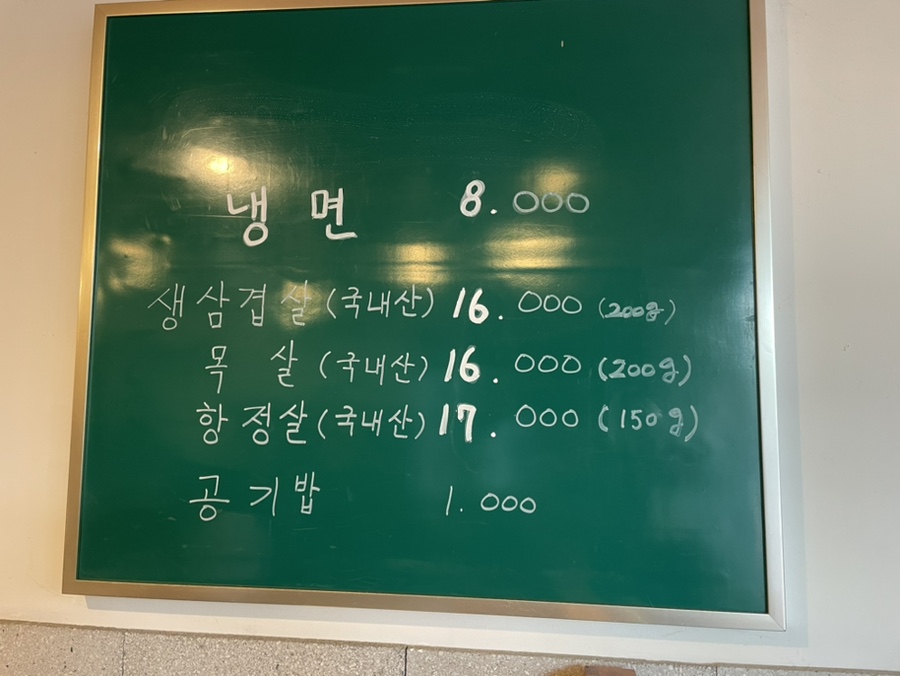 냉면 8.000
생삼겹살(국내산) 16.000 (200g)
목살(국내산) 16.000 (200g)
항정살(국내산) 17.000 (150g)
공기밥 1.000